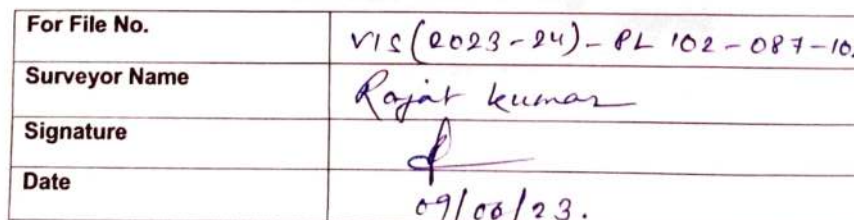 For File No. VIS(2023-24)-PL 102-087-10
Surveyor Name Rajat kumar
Signature
Date 09/06/23.